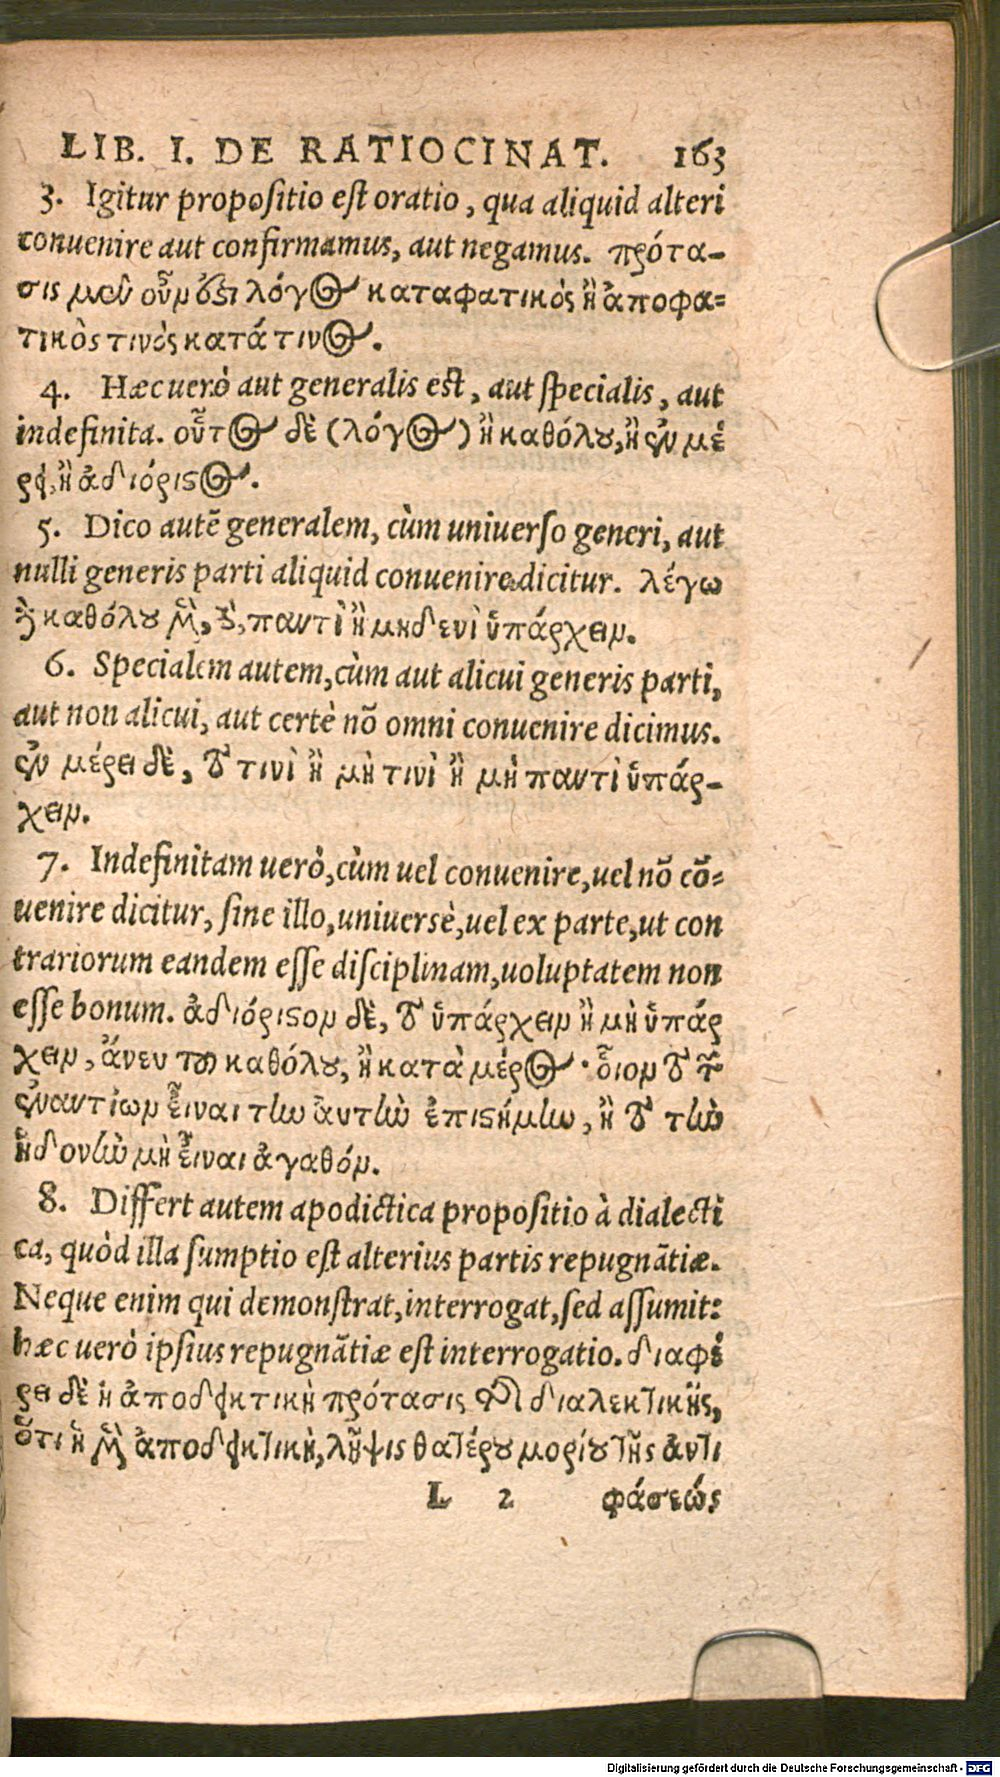 LIB. I. DE RATIOCINAT. 163
3. Igitur propositio est oratio, qua aliquid alteri
conuenire aut confirmamus, aut negamus. πρότα-
σις μὲν οὖν ἐστὶ λόγος καταφατικὸς ἢ ἀποφα=
τικὸς τινός κατά τινος.
4. Hæc uerò aut generalis est, aut specialis, aut
indefinita. οὗτος δὲ (λόγος) ἢ καθόλου, ἢ ἐν μέ
ρει, ἢ ἀδιόριστος.
5. Dico autē generalem, cùm uniuerso generi, aut
nulli generis parti aliquid conuenire dicitur. λέγω
δὲ καθόλου μὲν, τὸ, παντὶ ἢ μηδενὶ ὑπάρχειν.
6. Specialem autem, cùm aut alicui generis parti,
aut non alicui, aut certè nō omni conuenire dicimus.
ἐν μέρει δὲ, τὸ τινὶ ἢ μὴ τινὶ ἢ μὴ παντὶ ὑπάρ-
χειν.
7. Indefinitam uerò, cùm uel conuenire, uel nō cō=
uenire dicitur, sine illo, uniuersè, uel ex parte, ut con
trariorum eandem esse disciplinam, uoluptatem non
esse bonum. ἀδιόριστον δὲ, τὸ ὑπάρχειν ἢ μὴ ὑπάρ
χειν, ἄνευ τοῦ καθόλου, ἢ κατὰ μέρος· οἷον τὸ τῶν
ἐναντίων εἶναι τὴν ἀυτὴν ἐπιστήμην, ἢ τὸ τὴν
ἡδονὴν μὴ εἶναι ἀγαθόν.
8. Differt autem apodictica propositio à dialecti
ca, quòd illa sumptio est alterius partis repugnātiæ.
Neque enim qui demonstrat, interrogat, sed assumit:
hæc uerò ipsius repugnātiæ est interrogatio. διαφέ
ρει δὲ ἡ ἀποδεικτικὴ πρότασις τῆς διαλεκτικῆς,
ὅτι ἡ μὲν ἀποδεικτικὴ, λῆψις θατέρου μορίου τῆς ἀντι
L 2 φάσεώς
Digitalisierung gefördert durch die Deutsche Forschungsgemeinschaft - DFG